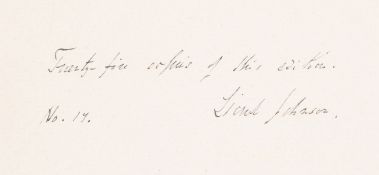 Twenty-five copies of this edition.
No. 17. Lionel Johnson.